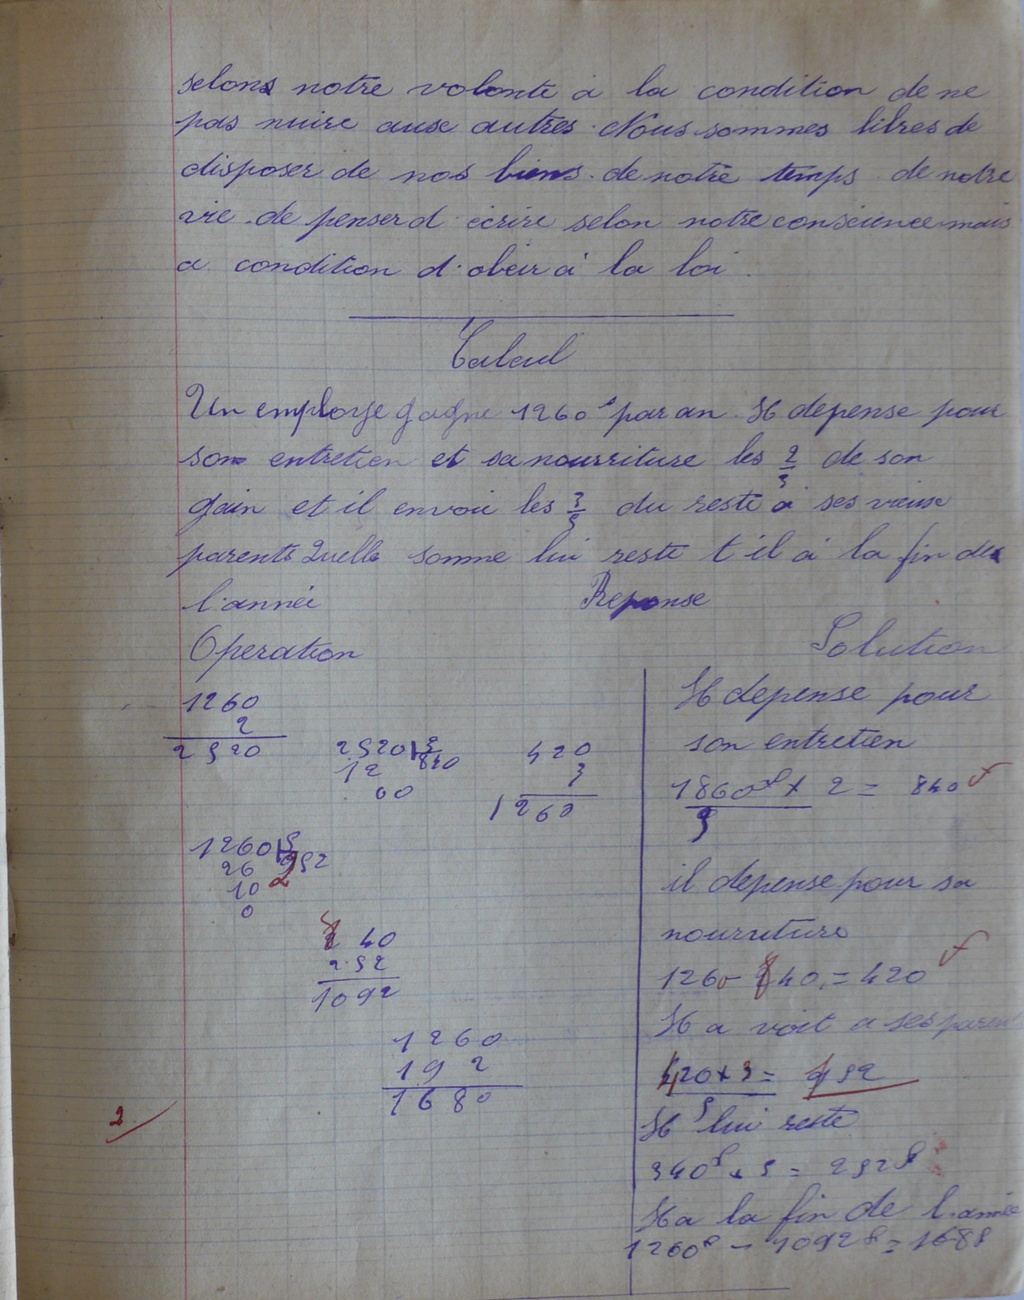 selons notre volonté a la condition de ne
pas nuire ause autres. Nous sommes libres de
disposer de nos biens. de notre temps. de notre
vie. de penser d'écrire selon notre conscience mais
a condition d'obeir à la loi.
Calcul
Un employe gagne 1260f par an. Il depense pour
son entretien et sa nourriture les 2/3 de son
gain et il envoie les 3/5 du reste à ses vieuse
parents Quelle somme lui reste t'il à la fin de
l'année
Reponse
Operation
Solution
1260
2
2520
2520 3
12 840
00
420
3
1260
1260 5
26 252
10
0
840
252
1092
1260
192
1680
2
Il depense pour
son entretien
1860f x 2 = 840f
3
il depense pour sa
nourriture
1260 - 840 = 420
Il a voit a ses parent
420 x 3 = 252
5
Il lui reste
340f x 5 = 252f
Il a la fin de l'année
1260f - 1092f = 168f